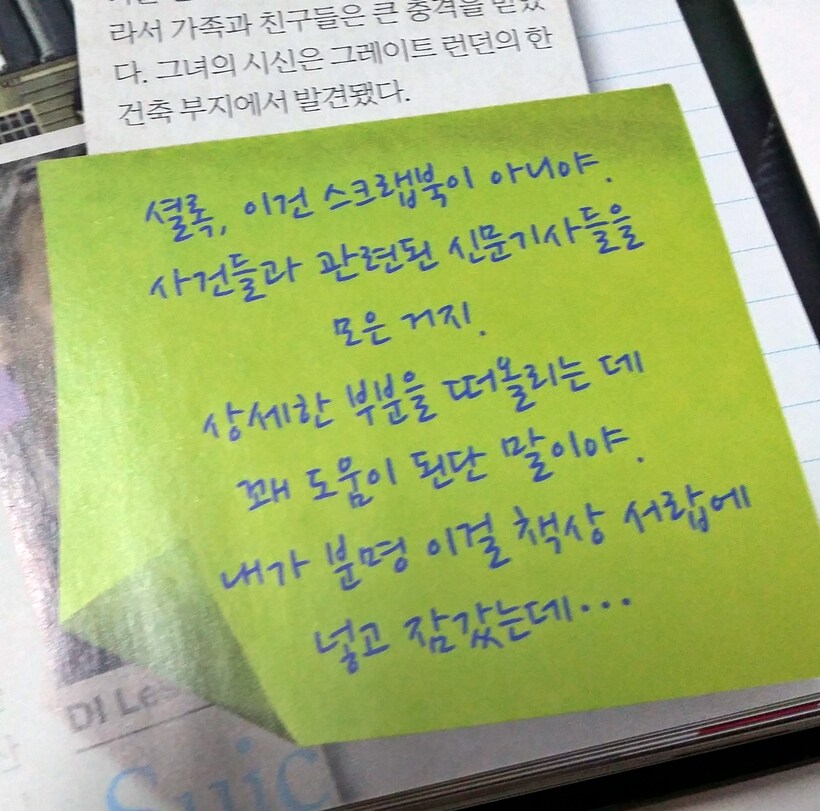 라서 가족과 친구들은 큰 충격을 받았
다. 그녀의 시신은 그레이트 런던의 한
건축 부지에서 발견됐다.
셜록, 이건 스크랩북이 아니야.
사건들과 관련된 신문기사들을
모은 거지.
상세한 부분을 떠올리는 데
꽤 도움이 된단 말이야.
내가 분명 이걸 책상 서랍에
넣고 잠갔는데...
DI Les
Suic